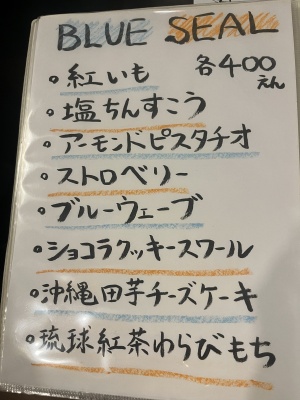 BLUE SEAL
各400えん
・紅いも
・塩ちんすこう
・アーモンドピスタチオ
・ストロベリー
・ブルーウェーブ
・ショコラクッキースワール
・沖縄田芋チーズケーキ
・琉球紅茶わらびもち